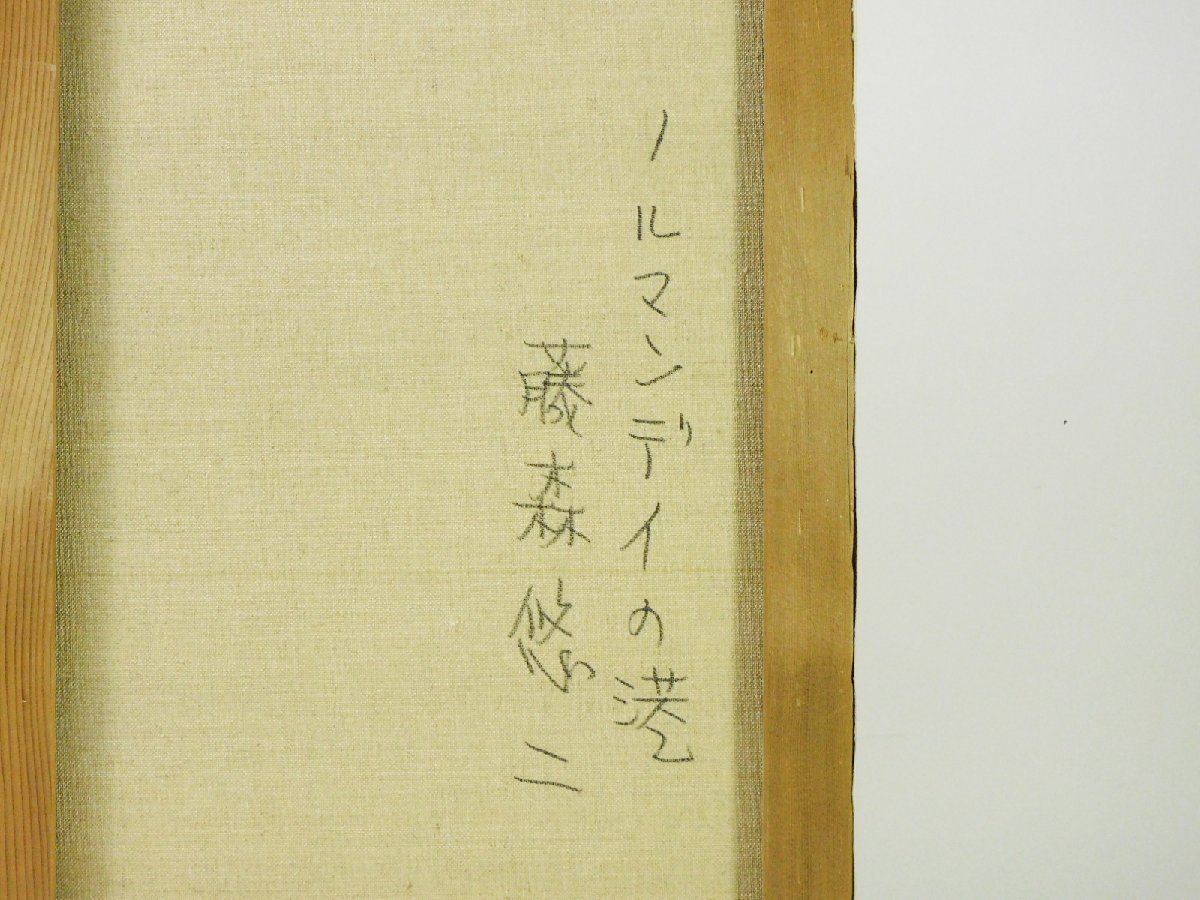 ノルマンデイの港
藤森悠二